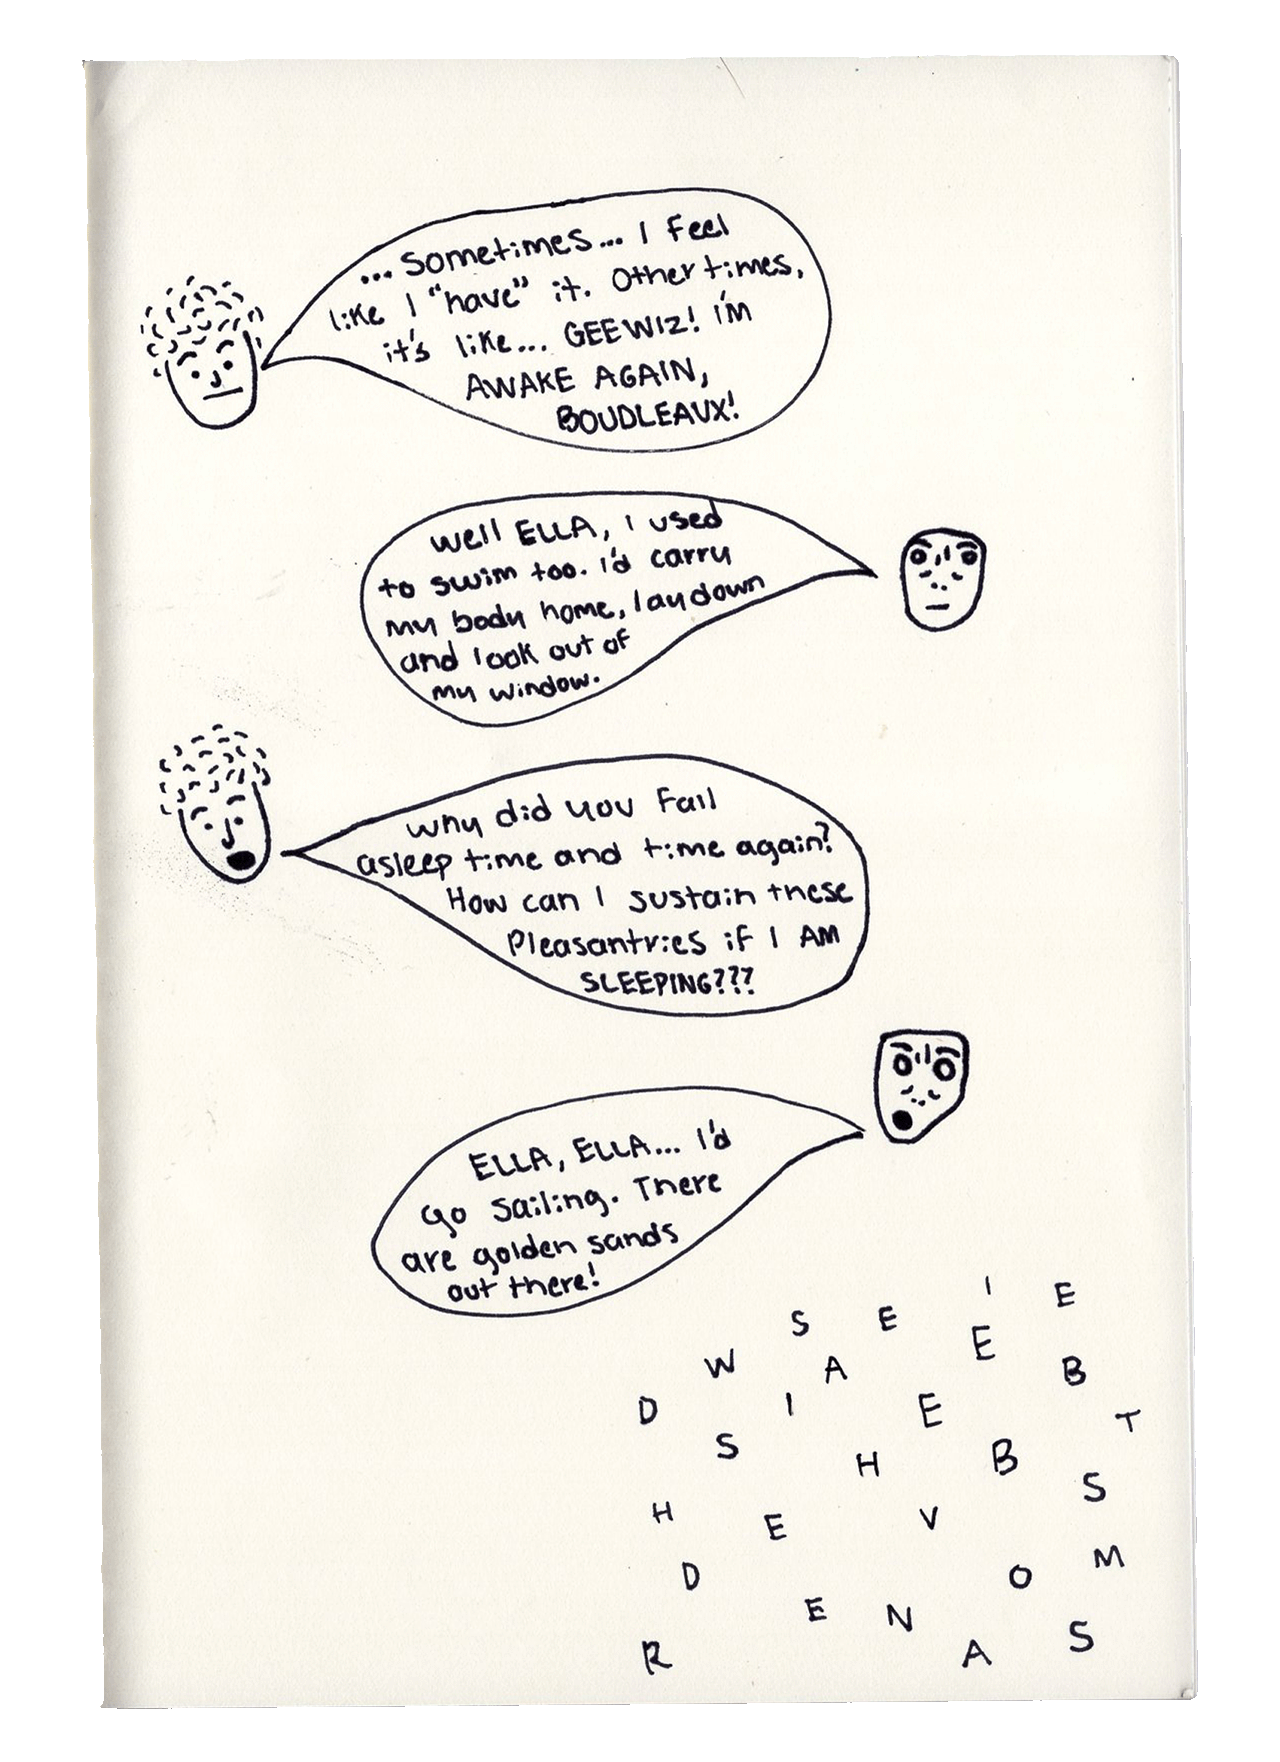 ...Sometimes... I feel
like I "have" it. Other times,
it's like... GEEWIZ! I'M
AWAKE AGAIN,
BOUDLEAUX!
Well ELLA, I used
to swim too. I'd carry
my body home, lay down
and look out of
my window.
Why did you fall
asleep time and time again?
How can I sustain these
Pleasantries if I AM
SLEEPING???
ELLA, ELLA... I'd
Go sailing. There
are golden sands
out there!
I E
S E E
W A B
D I E T
S H B S
H E V
D O M
E N S
R A